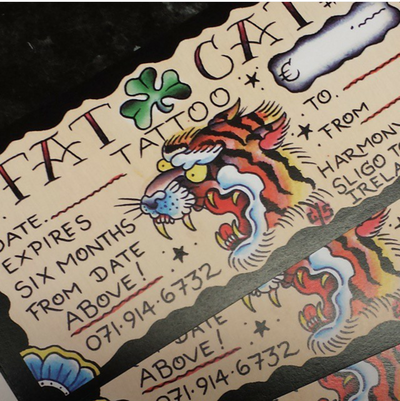 FAT CAT
TATTOO
€
DATE
TO
EXPIRES
FROM
SIX MONTHS
HARMONY
FROM DATE
SLIGO
ABOVE!
071·914·6732
DATE
ABOVE!
071·914·6732